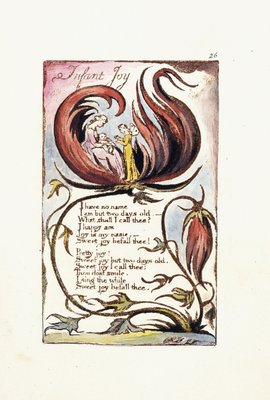 26
Infant Joy
I have no name
I am but two days old.—
What shall I call thee?
I happy am
Joy is my name,—
Sweet joy befall thee!
Pretty joy!
Sweet joy but two days old.
Sweet joy I call thee:
Thou dost smile.
I sing the while
Sweet joy befall thee.